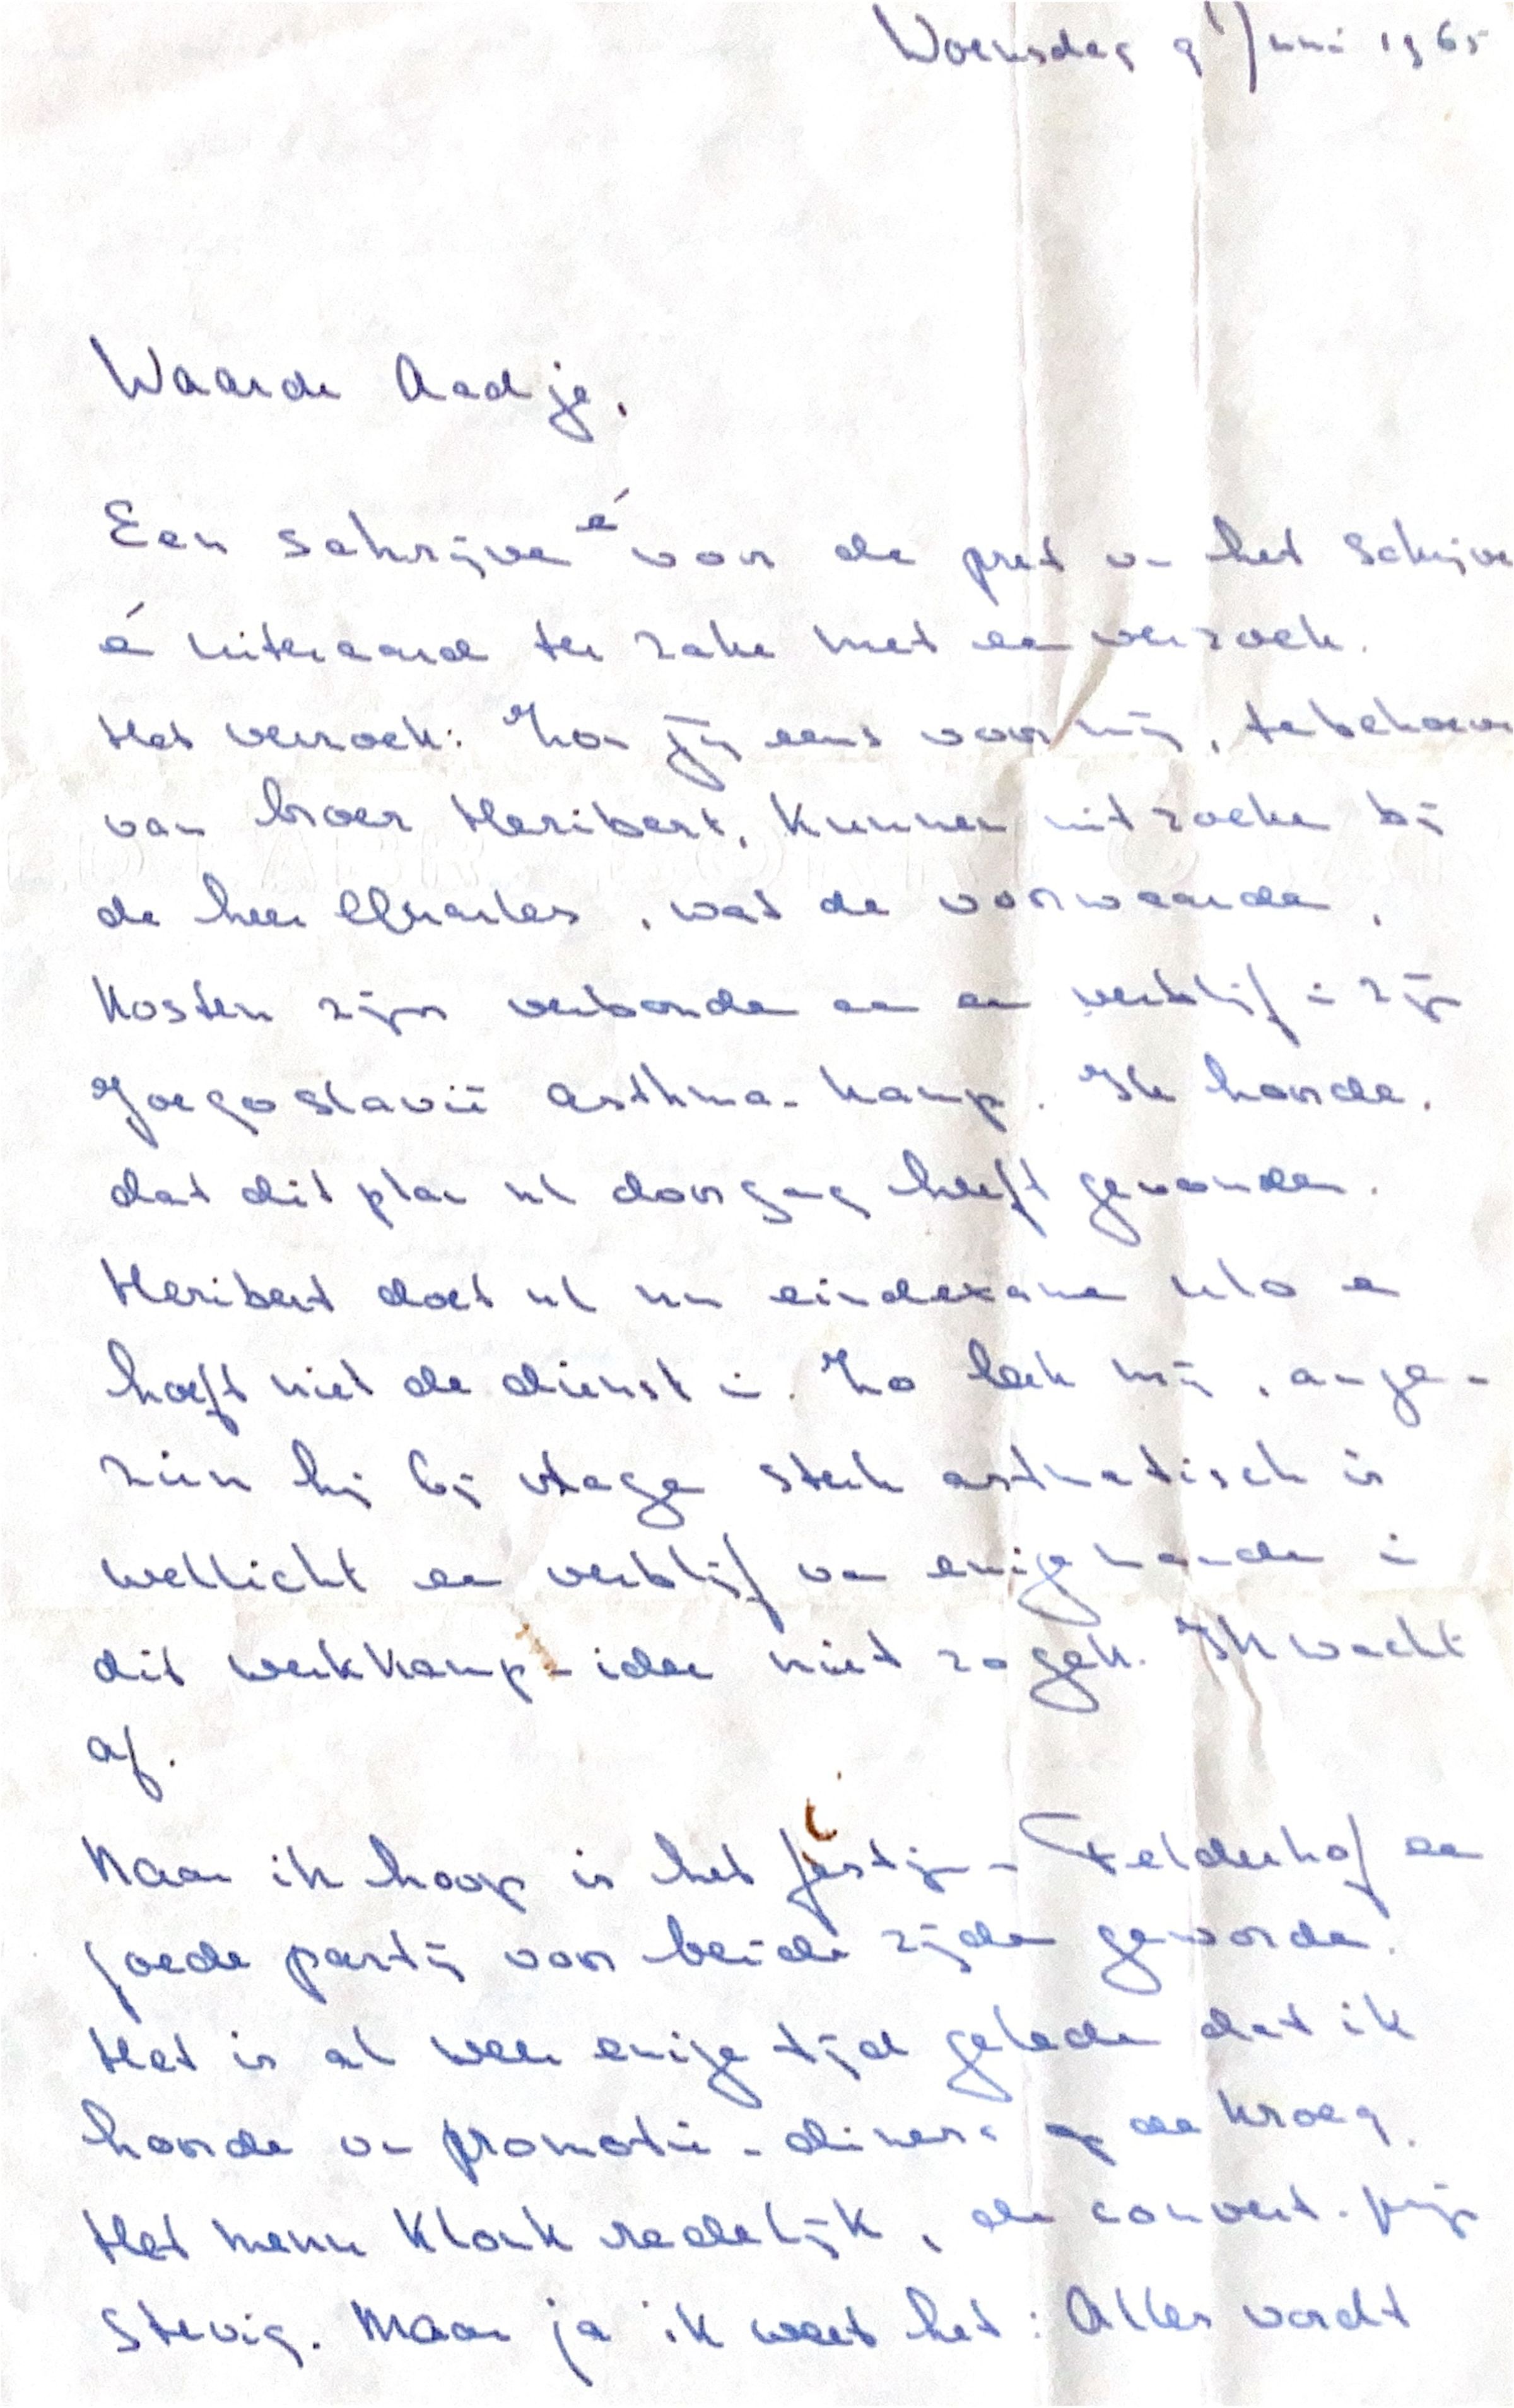 Woensdag 9 Juni 1965
Waarde Aadje,
Een schrijve é voor de pret v. het schrijve
é uiteraard ter zake met een verzoek.
Het verzoek: Zou jij eens voor mij, tebehoeve
van broer Heribert, kunnen uitzoeke bij
de heer Quarles, wat de voorwaarde,
kosten zijn verbonde aan een verblijf in zijn
Joegoslavië Asthma-kamp. Ik hoorde,
dat dit plan al doorgang heeft gevonden.
Heribert doet nl nu eindexame ulo en
hoeft niet de dienst in. Zo leek mij, aange-
zien hij bij vlage sterk asthmatisch is
wellicht een verblijf van enige maande in
dit werkkamp-idee niet zo gek. Ik wacht
af.
Naar ik hoop is het festijn - Felderhof een
goede partij voor beide zijde geworde.
Het is al weer enige tijd gelede dat ik
hoorde v. promotie-diners op de kroeg.
Het menu klonk redelijk, de couvert-prijs
stevig. Maar ja ik weet het: Alles wordt